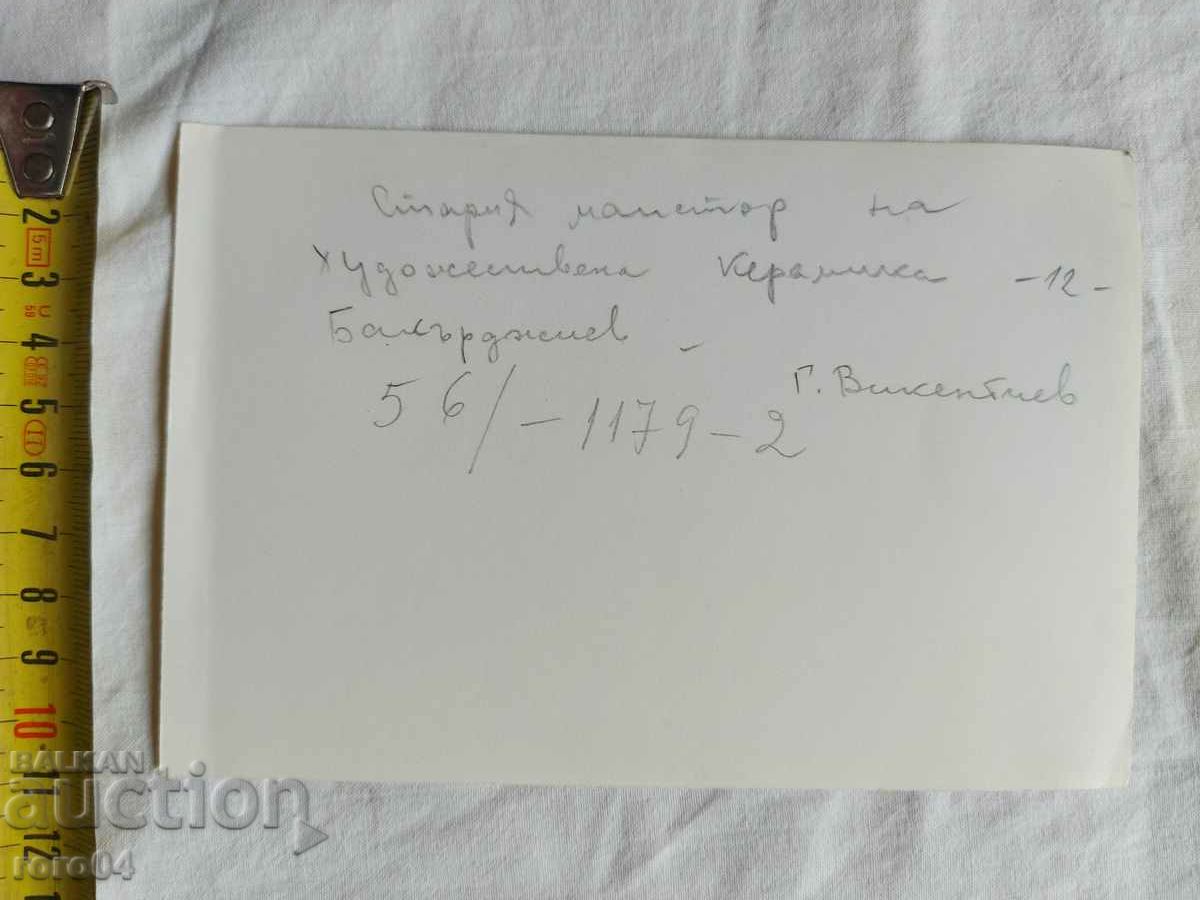 Стария майстор на
художествена керамика -12-
Бакърджиев -
Г. Викентиев
56/-1179-2
2
5m
3
4
5
II
6
7
8
9
10
11
12
BALKAN
auction
roro04